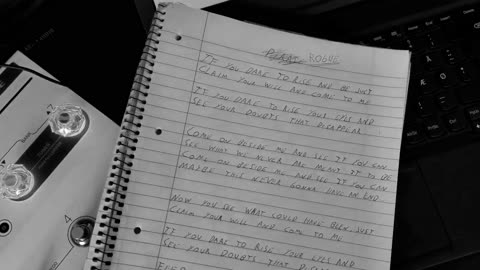 ROGUE
IF YOU DARE TO RISE AND BE JUST
CLAIM YOUR WILL AND COME TO ME
IF YOU DARE TO RISE YOUR LIES AND
SEE YOUR DOUBTS THAT DISAPPEAR
COME ON BESIDE ME AND SEE IF YOU CAN
SEE WHAT WE NEVER ARE MEANT IT TO BE
COME ON BESIDE ME AND SEE IF YOU CAN
MAYBE THIS NEVER GONNA HAVE AN END
NOW YOU SEE WHAT COULD HAVE BEEN JUST
CLAIM YOUR WILL AND COME TO ME
IF YOU DARE TO RISE YOUR LIES AND
SEE YOUR DOUBTS THAT